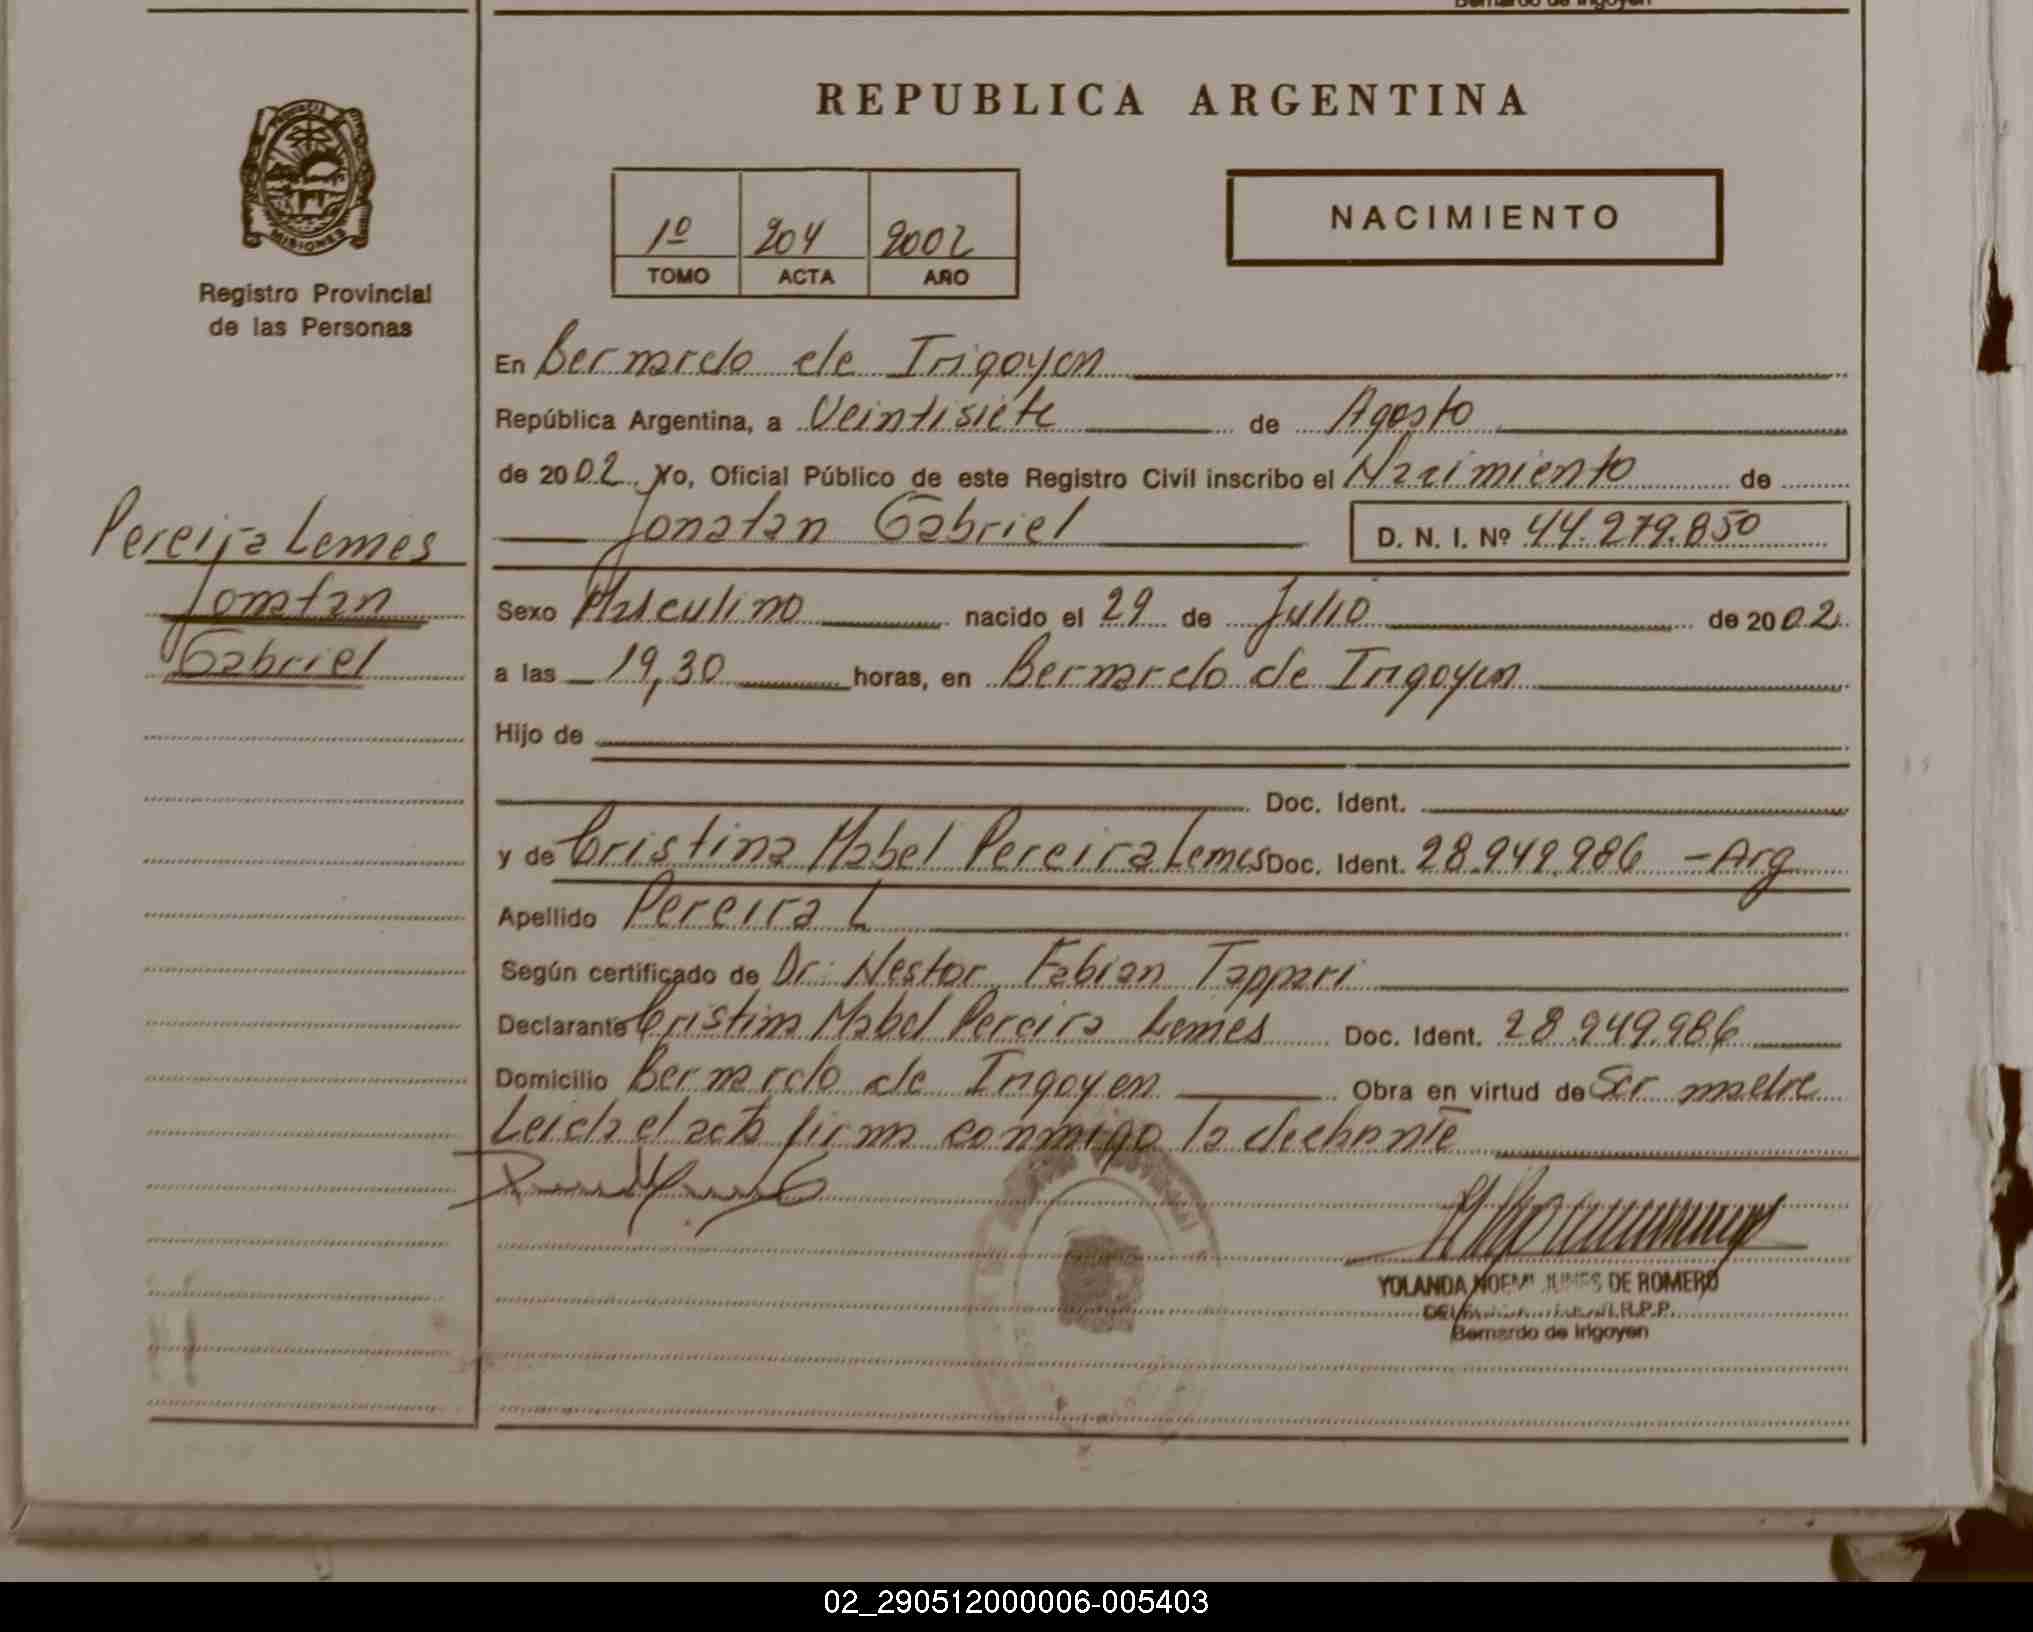 Bernardo de Irigoyen
REPUBLICA ARGENTINA
PROVINCIA
MISIONES
Registro Provincial
de las Personas
1º 204 2002
TOMO ACTA AÑO
NACIMIENTO
En Bernardo de Irigoyen
República Argentina, a Veintisiete de Agosto
de 2002 Yo, Oficial Público de este Registro Civil inscribo el Nacimiento de
Jonatan Gabriel D. N. I. Nº 44.279.850
Pereira Lemes
Jonatan
Gabriel
Sexo Masculino nacido el 29 de Julio de 2002
a las 19,30 horas, en Bernardo de Irigoyen
Hijo de
Doc. Ident.
y de Cristina Mabel Pereira Lemes Doc. Ident. 28.949.986 - Arg
Apellido Pereira L
Según certificado de Dr. Nestor Fabian Tappari
Declarante Cristina Mabel Pereira Lemes Doc. Ident. 28.949.986
Domicilio Bernardo de Irigoyen Obra en virtud de Ser madre
Leida el acta firma conmigo la declarante
YOLANDA NOEMI DE ROMERO
R.P.P.
Bernardo de Irigoyen
02_290512000006-005403